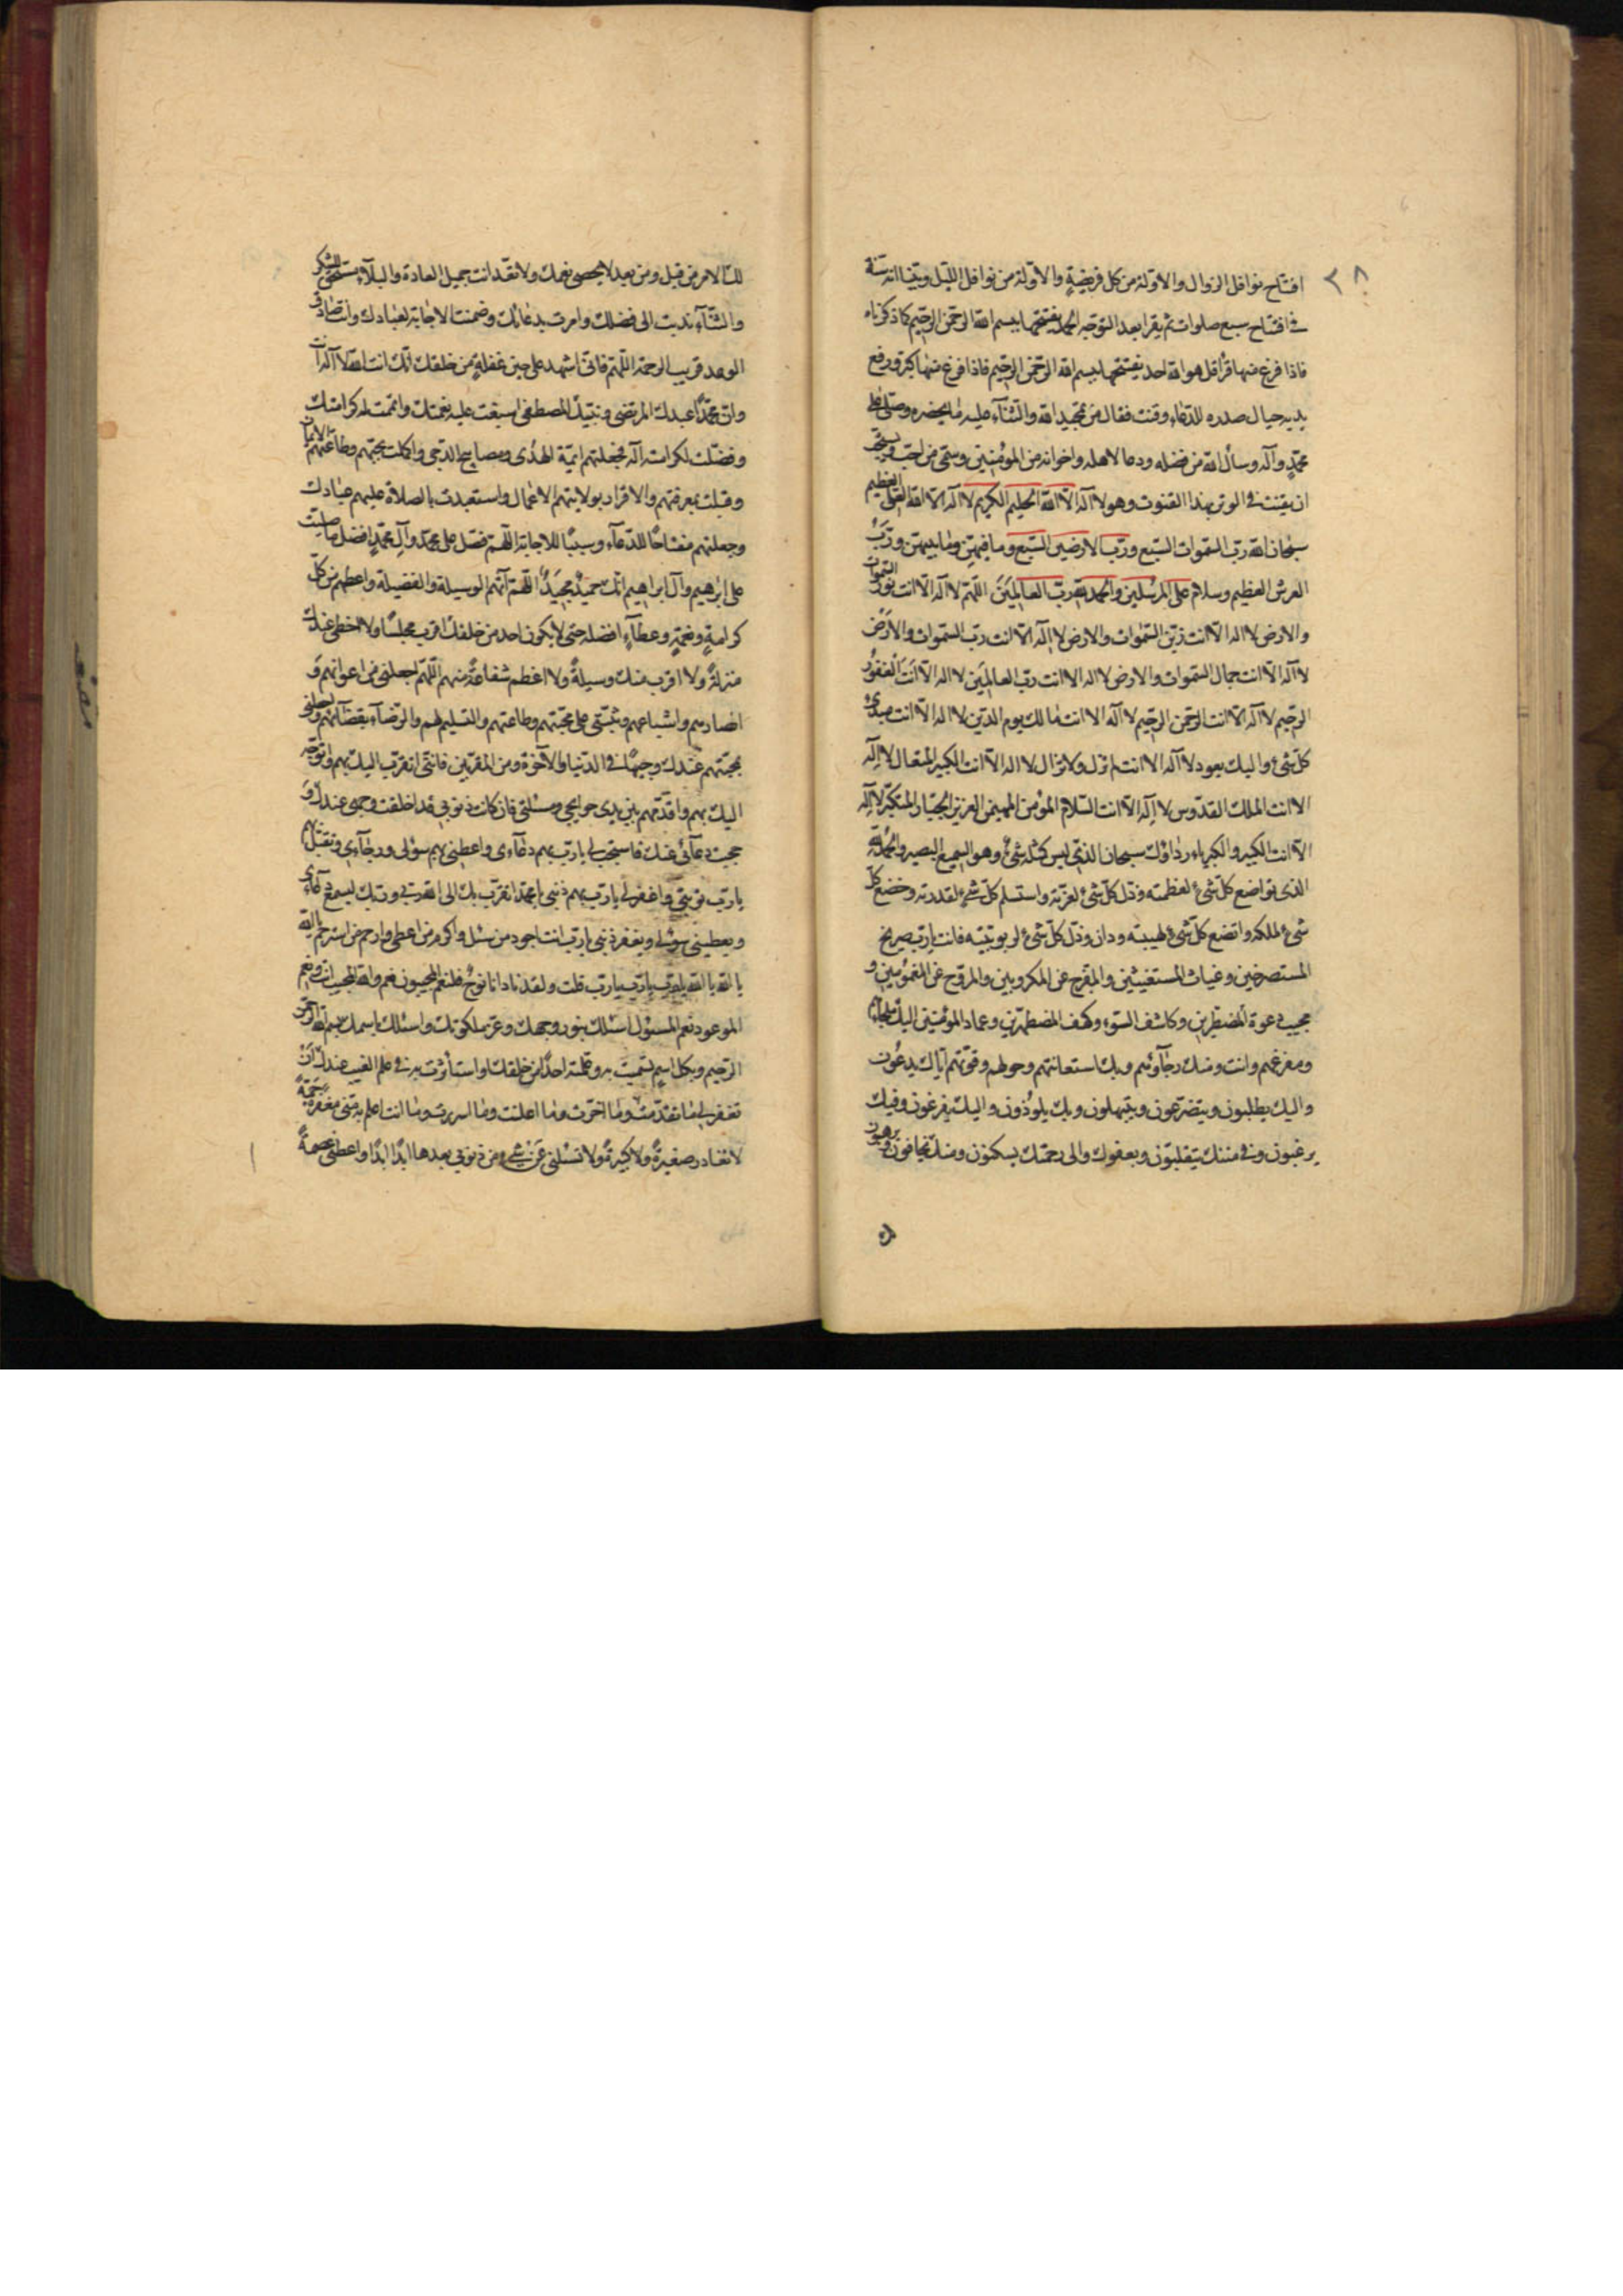 ٢٨
افتتاح نوافل الزوال والاولة من كل فريضةٍ والاولة من نوافل الليل وبيّنا انه سنة
فى افتتاح سبع صلوات ثم يقرا بعد التوجه الحمد يفتتحها ببسم الله الرحمن الرحيم كما ذكرناه
فاذا فرغ منها قرأ قل هو الله احد يفتتحها ببسم الله الرحمن الرحيم فاذا فرغ منها كبر ورفع
يديه حيال صدره للدعاء وقنت فقال من تمجيد الله والثناء عليه ما يحضره وصلى على
محمدٍ وآله وسأل الله من فضله ودعا لاهله واخوانه من المؤمنين وسمى من احب ويستحب
ان يقنت فى الوتر بهذا القنوت وهو لا آله الّا الله الحليم الكريم لا آله الّا الله العلى العظيم
سبحان الله رب السموات السبع ورب الارضين السبع وما فيهن وما بينهن ورب
العرش العظيم وسلام على المرسلين والحمد لله رب العالمين اللهم لا آله الّا انت نور السموات
والارض لا اله الّا انت زين السموات والارض لا اله الّا انت رب السموات والارض
لا آله الّا انت جمال السموات والارض لا اله الا انت رب العالمين لا اله الّا انت الغفور
الرحيم لا آله الّا انت الرحمن الرحيم لا آله الا انت مالك يوم الدين لا اله الّا انت مبدئ
كل شئ واليك يعود لا آله الا انت لم تزل ولا تزال لا اله الّا انت الكبير المتعال لا اله
الا انت الملك القدوس لا اله الّا انت السلام المؤمن المهيمن العزيز الجبار المتكبر لا اله
الّا انت الكبير والكبرياء رداؤك سبحان الذى ليس كمثله شئ وهو السميع البصير والحمد لله
الذى تواضع كل شئ لعظمته وذل كل شئ لعزته واستسلم كل شئ لقدرته وخضع كل
شئ لملكه واتضع كل شئ لهيبته ودان وذل كل شئ لربوبيته فانت يارب صريخ
المستصرخين وغياث المستغيثين والمفرج عن المكروبين والمروح عن المغمومين و
مجيب دعوة المضطرين وكاشف السوء وكهف المضطهدين وعماد المؤمنين اليك ملجأهم
ومفزعهم وانت ومنك رجاؤهم وبك استعانتهم وحولهم وقوتهم اياك يدعون
واليك يطلبون ويتضرعون ويبتهلون وبك يلوذون واليك يفزعون وفيك
يرغبون وفى مننك يتقلبون وبعفوك والى رحمتك يسكنون ومنك يخافون ويرهبون
لك الامر من قبل ومن بعد لا يحصى نعمك ولا تعد انت جميل العادة والبلاء مستحق للشكر
والثناء ندبت الى فضلك وامرت بدعائك وضمنت الاجابة لعبادك وانت صادق
الوعد قريب الرحمة اللهم فانى اشهد على حين غفلةٍ من خلقك انك انت الله لا آله الا انت
وان محمدًا عبدك المرتضى ونبيك المصطفى اسبغت عليه نعمتك واتممت له كرامتك
وفضلت لكرامته آله فجعلتهم ائمة الهدى ومصابيح الدجى واكملت بحبهم وطاعتهم الايمان
وقبلت بمعرفتهم والاقرار بولايتهم الاعمال واستعبدت بالصلاة عليهم عبادك
وجعلتهم مفتاحًا للدعاء وسببًا للاجابة اللهم فصل على محمد وآل محمدٍ افضل ما صليت
على ابراهيم وآل ابراهيم انك حميد مجيد اللهم آتهم الوسيلة والفضيلة واعطهم من كل
كرامةٍ ونعمةٍ وعطاءٍ افضله حتى لا يكون احد من خلقك اقرب مجلسًا ولا احظى عندك
منزلةً ولا اقرب منك وسيلةً ولا اعظم شفاعةً منهم اللهم اجعلنى من اعوانهم و
انصارهم واشياعهم وثبتنى على محبتهم وطاعتهم والتسليم لهم والرضاء بقضائهم واجعلنى
بمحبتهم عندك وجيهًا فى الدنيا والآخرة ومن المقربين فاننى اتقرب اليك بهم واتوجه
اليك بهم واقدمهم بين يدى حوايجى ومسئلتى فان كانت ذنوبى قد اخلقت وجهى عندك و
حجبت دعائى عنك فاستجب لى يا رب بهم دعاءى واعطنى بهم سؤلى ورجاءى وتقبل بهم
يا رب توبتى واغفر لى يا رب بهم ذنبى يا محمد اتقرب بك الى الله ربى وربك ليسمع دعاءى
ويعطينى سؤلى ويغفر ذنبى يا رب انت اجود من سئل واكرم من اعطى وارحم من استرحم يا الله
يا الله يا الله يا رب يا رب يا رب قلت ولقد نادانا نوحٌ فلنعم المجيبون نعم والله المجيب انت ونعم
المدعو ونعم المسئول اسئلك بنور وجهك وعز ملكوتك واسئلك باسمك بسم الله الرحمن
الرحيم وبكل اسمٍ تسميت به وعلمته احدًا من خلقك او استأثرت به فى علم الغيب عندك ان
تغفر لى ما تقدمت وما اخرت وما اعلنت وما اسررت وما انت اعلم به منى مغفرةً
لا تغادر صغيرةً ولا كبيرةً ولا تسئلنى عن شئٍ من ذنوبى بعدها ابدًا ابدًا واعطنى عصمةً